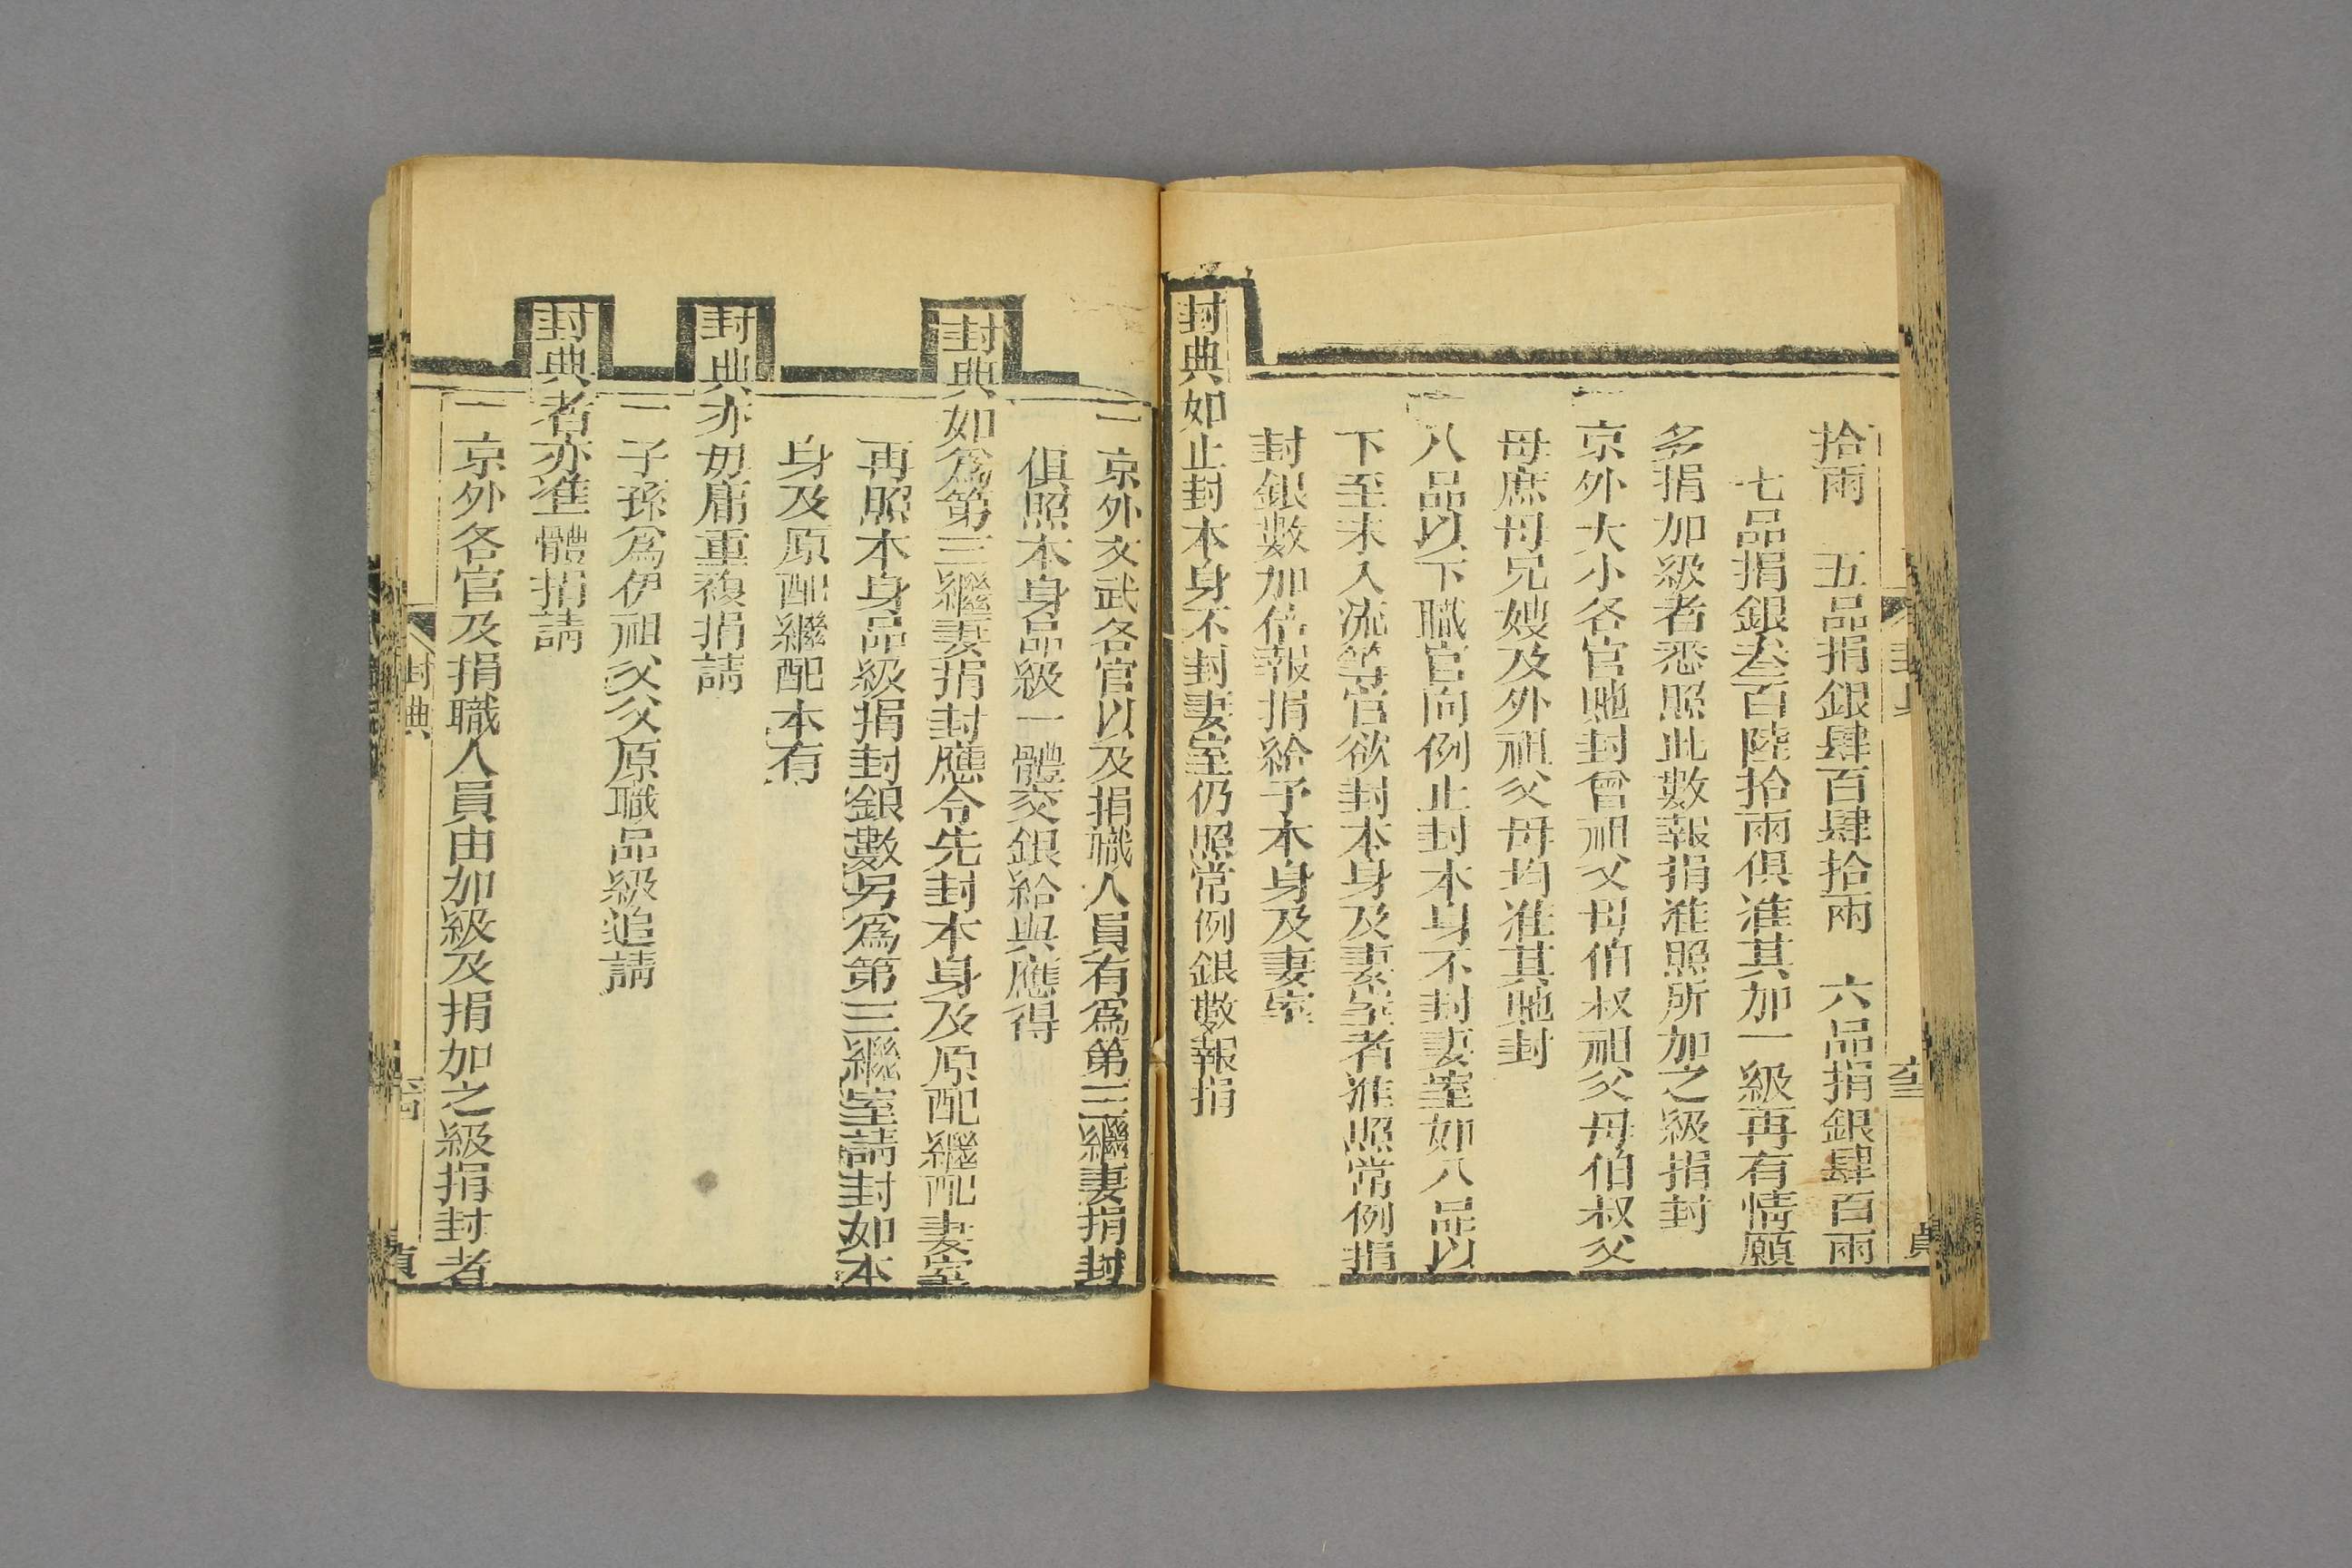 拾兩　五品捐銀肆百肆拾兩　六品捐銀肆百兩
七品捐銀叁百陸拾兩俱准其加一級再有情願
多捐加級者悉照此數報捐准照所加之級捐封
一京外大小各官貤封曾祖父母伯叔祖父母伯叔父
母庶母兄嫂及外祖父母均准其貤封
一八品以下職官向例止封本身不封妻室如八品以
下至未入流等官欲封本身及妻室者准照常例捐
封銀數加倍報捐給予本身及妻室
封典如止封本身不封妻室仍照常例銀數報捐
一京外文武各官以及捐職人員有爲第三繼妻捐封
俱照本身品級一體交銀給與應得
封典如爲第三繼妻捐封應令先封本身及原配繼配妻室
再照本身品級捐封銀數另爲第三繼室請封如本
身及原配繼配本有
封典亦毋庸重複捐請
一子孫爲伊祖父父原職品級追請
封典者亦准一體捐請
一京外各官及捐職人員由加級及捐加之級捐封者
封典
貞